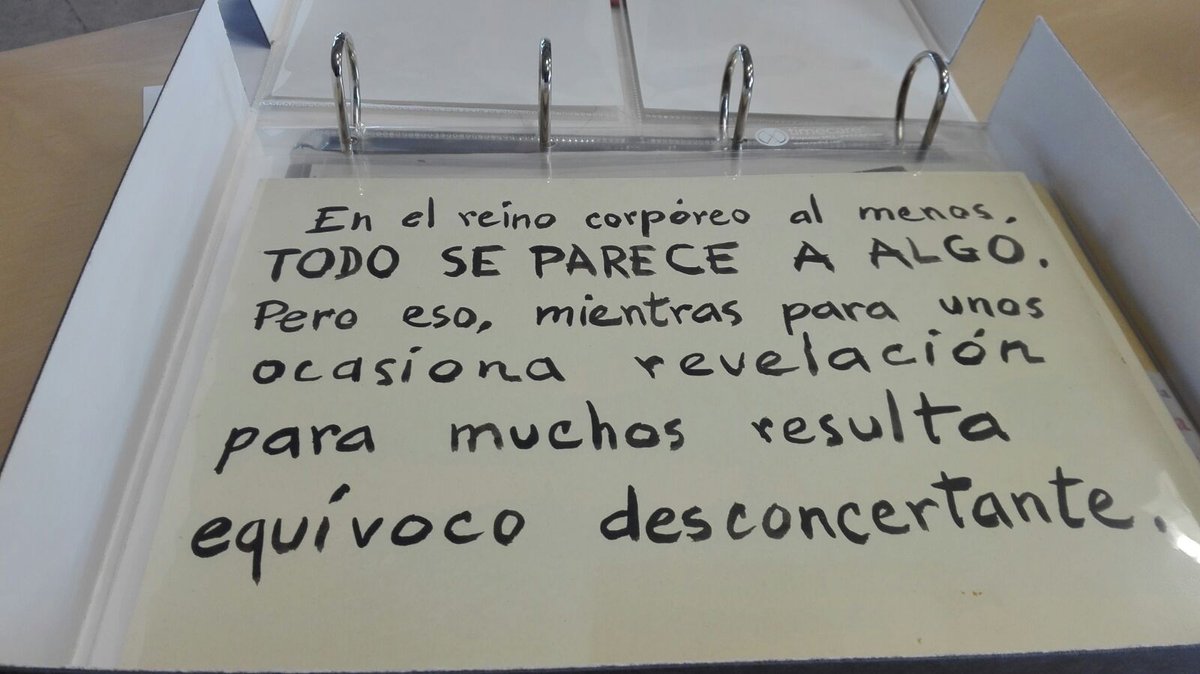 En el reino corpóreo al menos.
TODO SE PARECE A ALGO.
Pero eso, mientras para unos
ocasiona revelación
para muchos resulta
equívoco desconcertante.